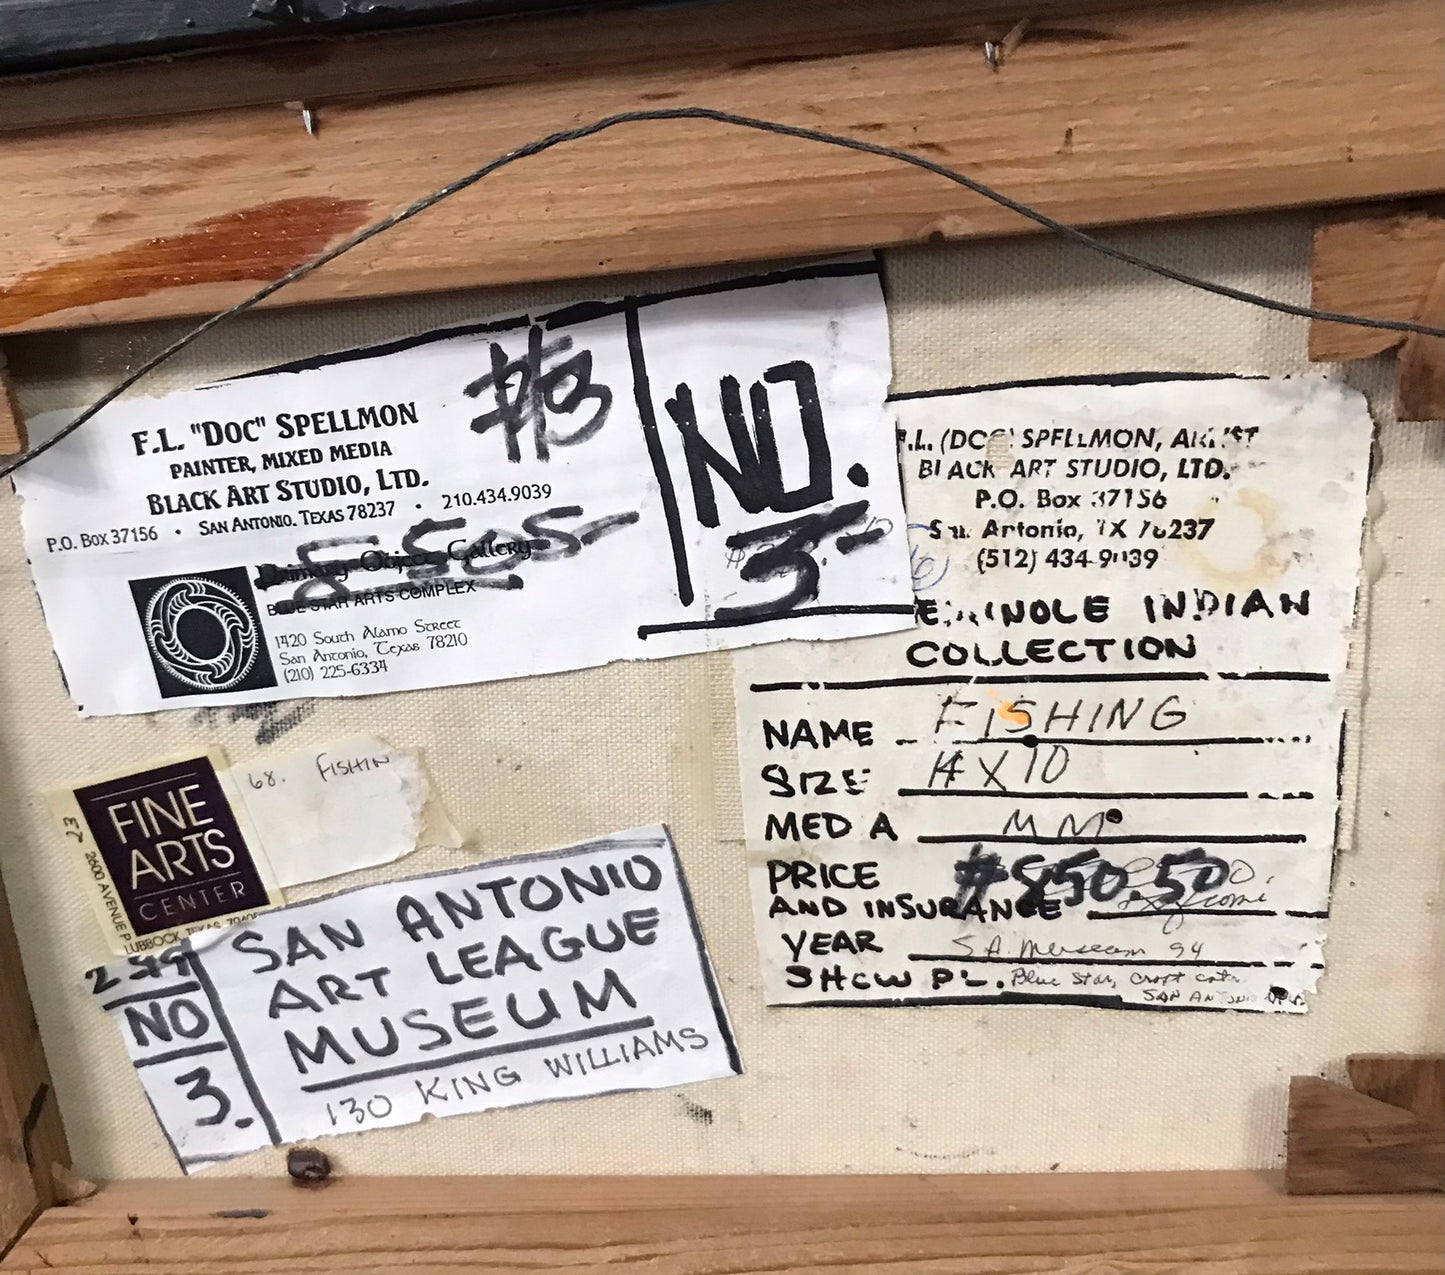 F.L. "DOC" SPELLMON
PAINTER, MIXED MEDIA
BLACK ART STUDIO, LTD.
P.O. BOX 37156 • SAN ANTONIO, TEXAS 78237 • 210.434.9039
Object Gallery
BLUE STAR ARTS COMPLEX
1420 South Alamo Street
San Antonio, Texas 78210
(210) 225-6334
#3
NO.
3-
F.L. (DOC) SPELLMON, ARTIST
BLACK ART STUDIO, LTD.
P.O. Box 37156
San Antonio, TX 78237
(512) 434-9039
SEMINOLE INDIAN
COLLECTION
NAME FISHING
SIZE X 10
MEDIA MM
PRICE #850.50
AND INSURANCE
YEAR S.A. Museum 94
SHOW PL. Blue Star, Craft
SAN ANTONIO
FINE
ARTS
CENTER
2600 AVENUE P
LUBBOCK, TEXAS
68. FISHIN
NO
3.
SAN ANTONIO
ART LEAGUE
MUSEUM
130 KING WILLIAMS